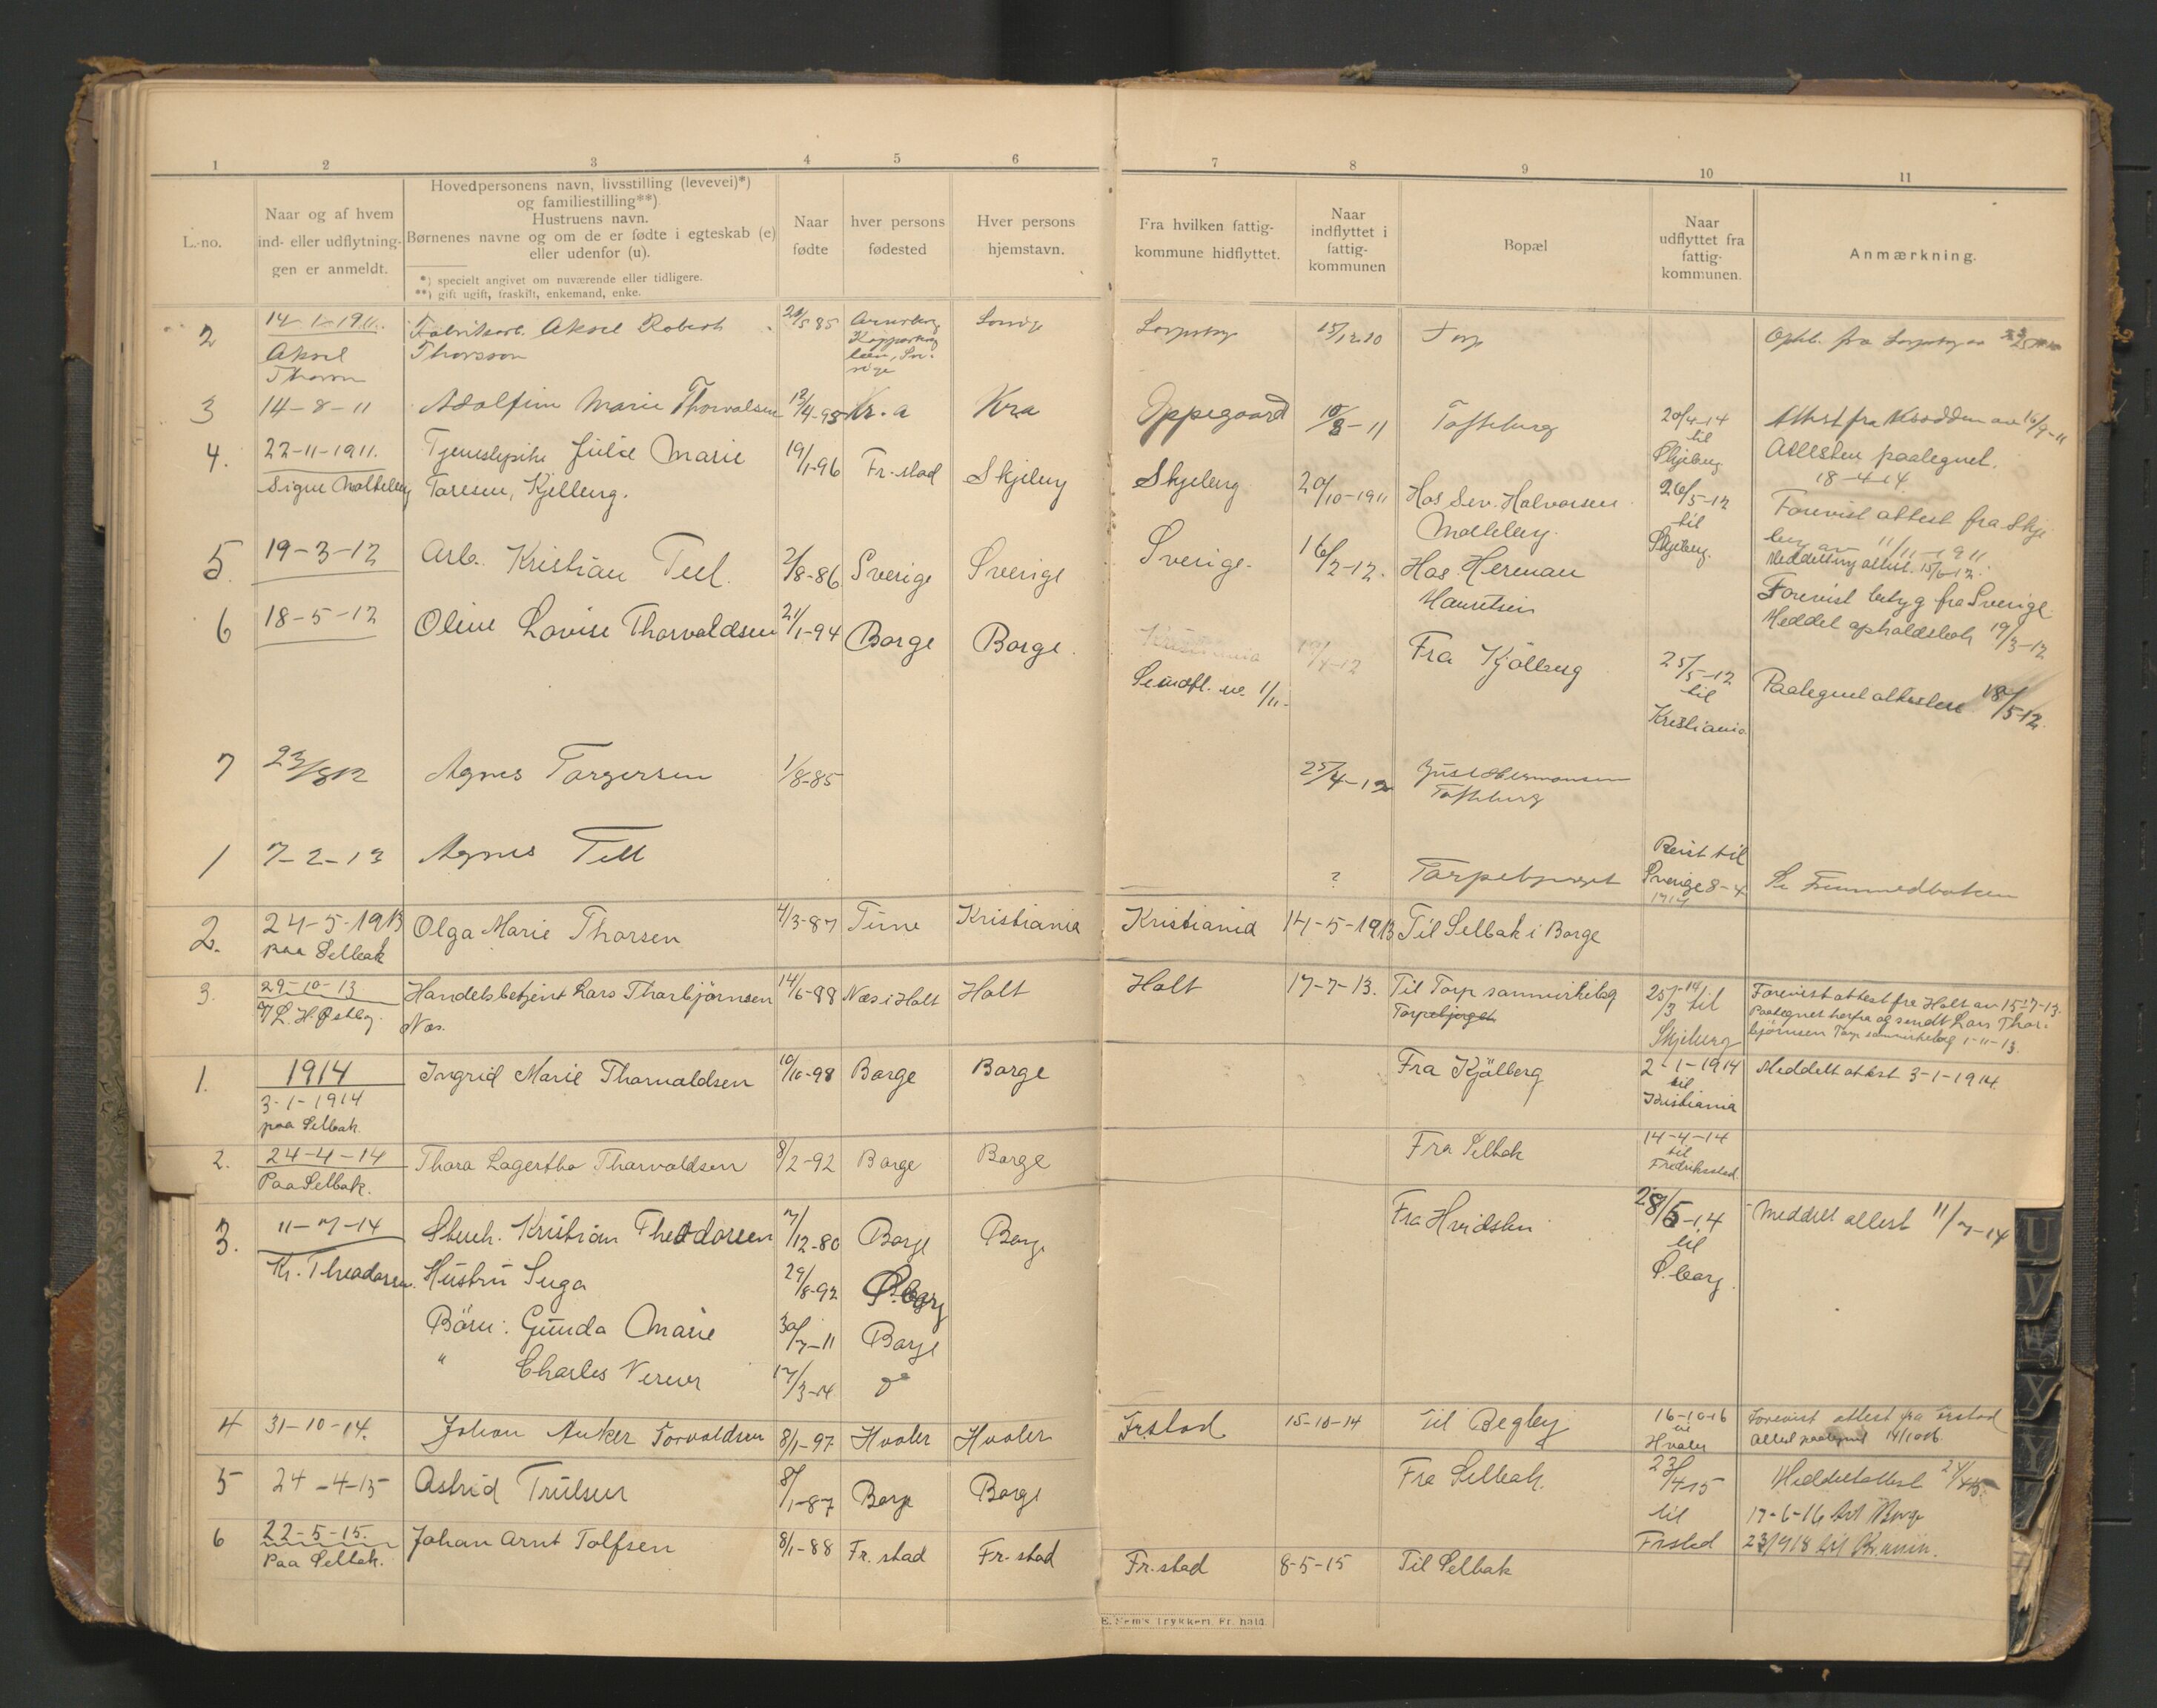 1 2 3 4 5 6 7 8 9 10 11
L.-no.
Naar og af hvem
ind- eller udflytnin-
gen er anmeldt.
Hovedpersonens navn, livsstilling (levevei)*)
og familiestilling**)
Hustruens navn.
Børnenes navne og om de er fødte i egteskab (e)
eller udenfor (u).
*) specielt angivet om nuværende eller tidligere.
**) gift ugift, fraskilt, enkemand, enke.
Naar
fødte
hver persons
fødested
Hver persons
hjemstavn.
Fra hvilken fattig-
kommune hidflyttet.
Naar
indflyttet i
fattig-
kommunen
Bopæl
Naar
udflyttet fra
fattig-
kommunen.
Anmærkning.
2 14-1-1911. Aksel Robert Torp
Aksel Thorsson
3 14-8-11 Adolfine Marie Thorvalsen 12/4-95 Kr.a Kra Oppegaard 10/8-11 Tofteberg 20/4-14
til
Skjeberg
Attesten paategnet.
18-4-14.
4. 22-11-1911. Tjenestepike Julie Marie 19/1-96 Fr.stad Skjeberg Skjeberg 20/10-1911 Hos Sev. Halvorsen 26/5-12 Forevist attest fra Skje-
Signe Molteberg Taresen, Kjelberg. Molteberg. til berg av 11/11-1911.
Skjeberg. Meddelt ny attest 15/6-12.
5. 19-3-12 Arb. Kristian Tell. 2/8-86 Sverige Sverige Sverige. 16/2-12. Hos Herman
Forevist betyg fra Sverige.
Meddel opholdsbok 19/3-12
6 18-5-12 Oline Lovise Thorvaldsen 21/1-94 Borge Borge. Kristiania Fra Kjølberg 25/5-12
til
Kristiania
Paategnet attesten 18/5-12.
7 23/8 12 Agnes Torgersen 1/8-85 25/4-12
Tofteberg
1 7-2-13 Agnes Tell ? Torpebjerget Reist til
Sverige 8-4
1914
Se Fremmedboken
2. 24-5-1913 Olga Marie Thorsen 4/3-87 Time Kristiania Kristiania 14-5-1913 Til Selbak i Borge
paa Selbak
3. 29-10-13 Handelsbetjent Lars Thorbjørnsen 14/6-98 Næs i Holt Holt Holt 17-7-13. Til Torp samvirkelag
L. H. Østby. Næs. Torpebjerget
til
Skjeberg
Forevist attest fra Holt av 15-7-13.
Paategnet herfra og sendt Lars Thor-
bjørnsen Torp samvirkelag 1-11-13.
1. 1914 Ingrid Marie Thorvaldsen 10/10-98 Borge Borge Fra Kjølberg 2-1-1914 Meddelt attest 3-1-1914.
3-1-1914 til
paa Selbak. Kristiania
2. 24-4-14 Thora Lagertha Thorvaldsen 8/2-92 Borge Borge Fra Selbak 14-4-14
Paa Selbak. til
Fredriksstad.
3. 11-7-14 Stenh. Kristian Theodorsen 7/12-80 Borge Borge Fra Hvidsten 28/5-14 Meddelt attest 11/7-14
til
Kr. Theodorsen. Hustru Inga 29/8-92 S.borg S.borg.
Børn: Gunda Marie 30/7-11 Borge
" Charles Verner 17/3-14 do
4 31-10-14. Johan Anker Torvaldsen 8/1-97 Hvaler Hvaler Frstad 15-10-14 Til Begby 16-10-16 Forevist attest fra Frstad
til Attest paategnet 14/10 16.
Hvaler
5 24-4-15 Astrid Trulsen 8/1-87 Borge Borge Fra Selbak. 23/4-15 Meddelt attest 24/4 15.
til 17-6-16 til Borge
Frstad
6 22-5-15. Johan Arnt Tolfsen 8/1-88 Fr.stad Fr.stad Fr.stad 8-5-15 Til Selbak
Paa Selbak.
E. Sem's Trykkeri. Fr.hald.
U
V
W
X
Y